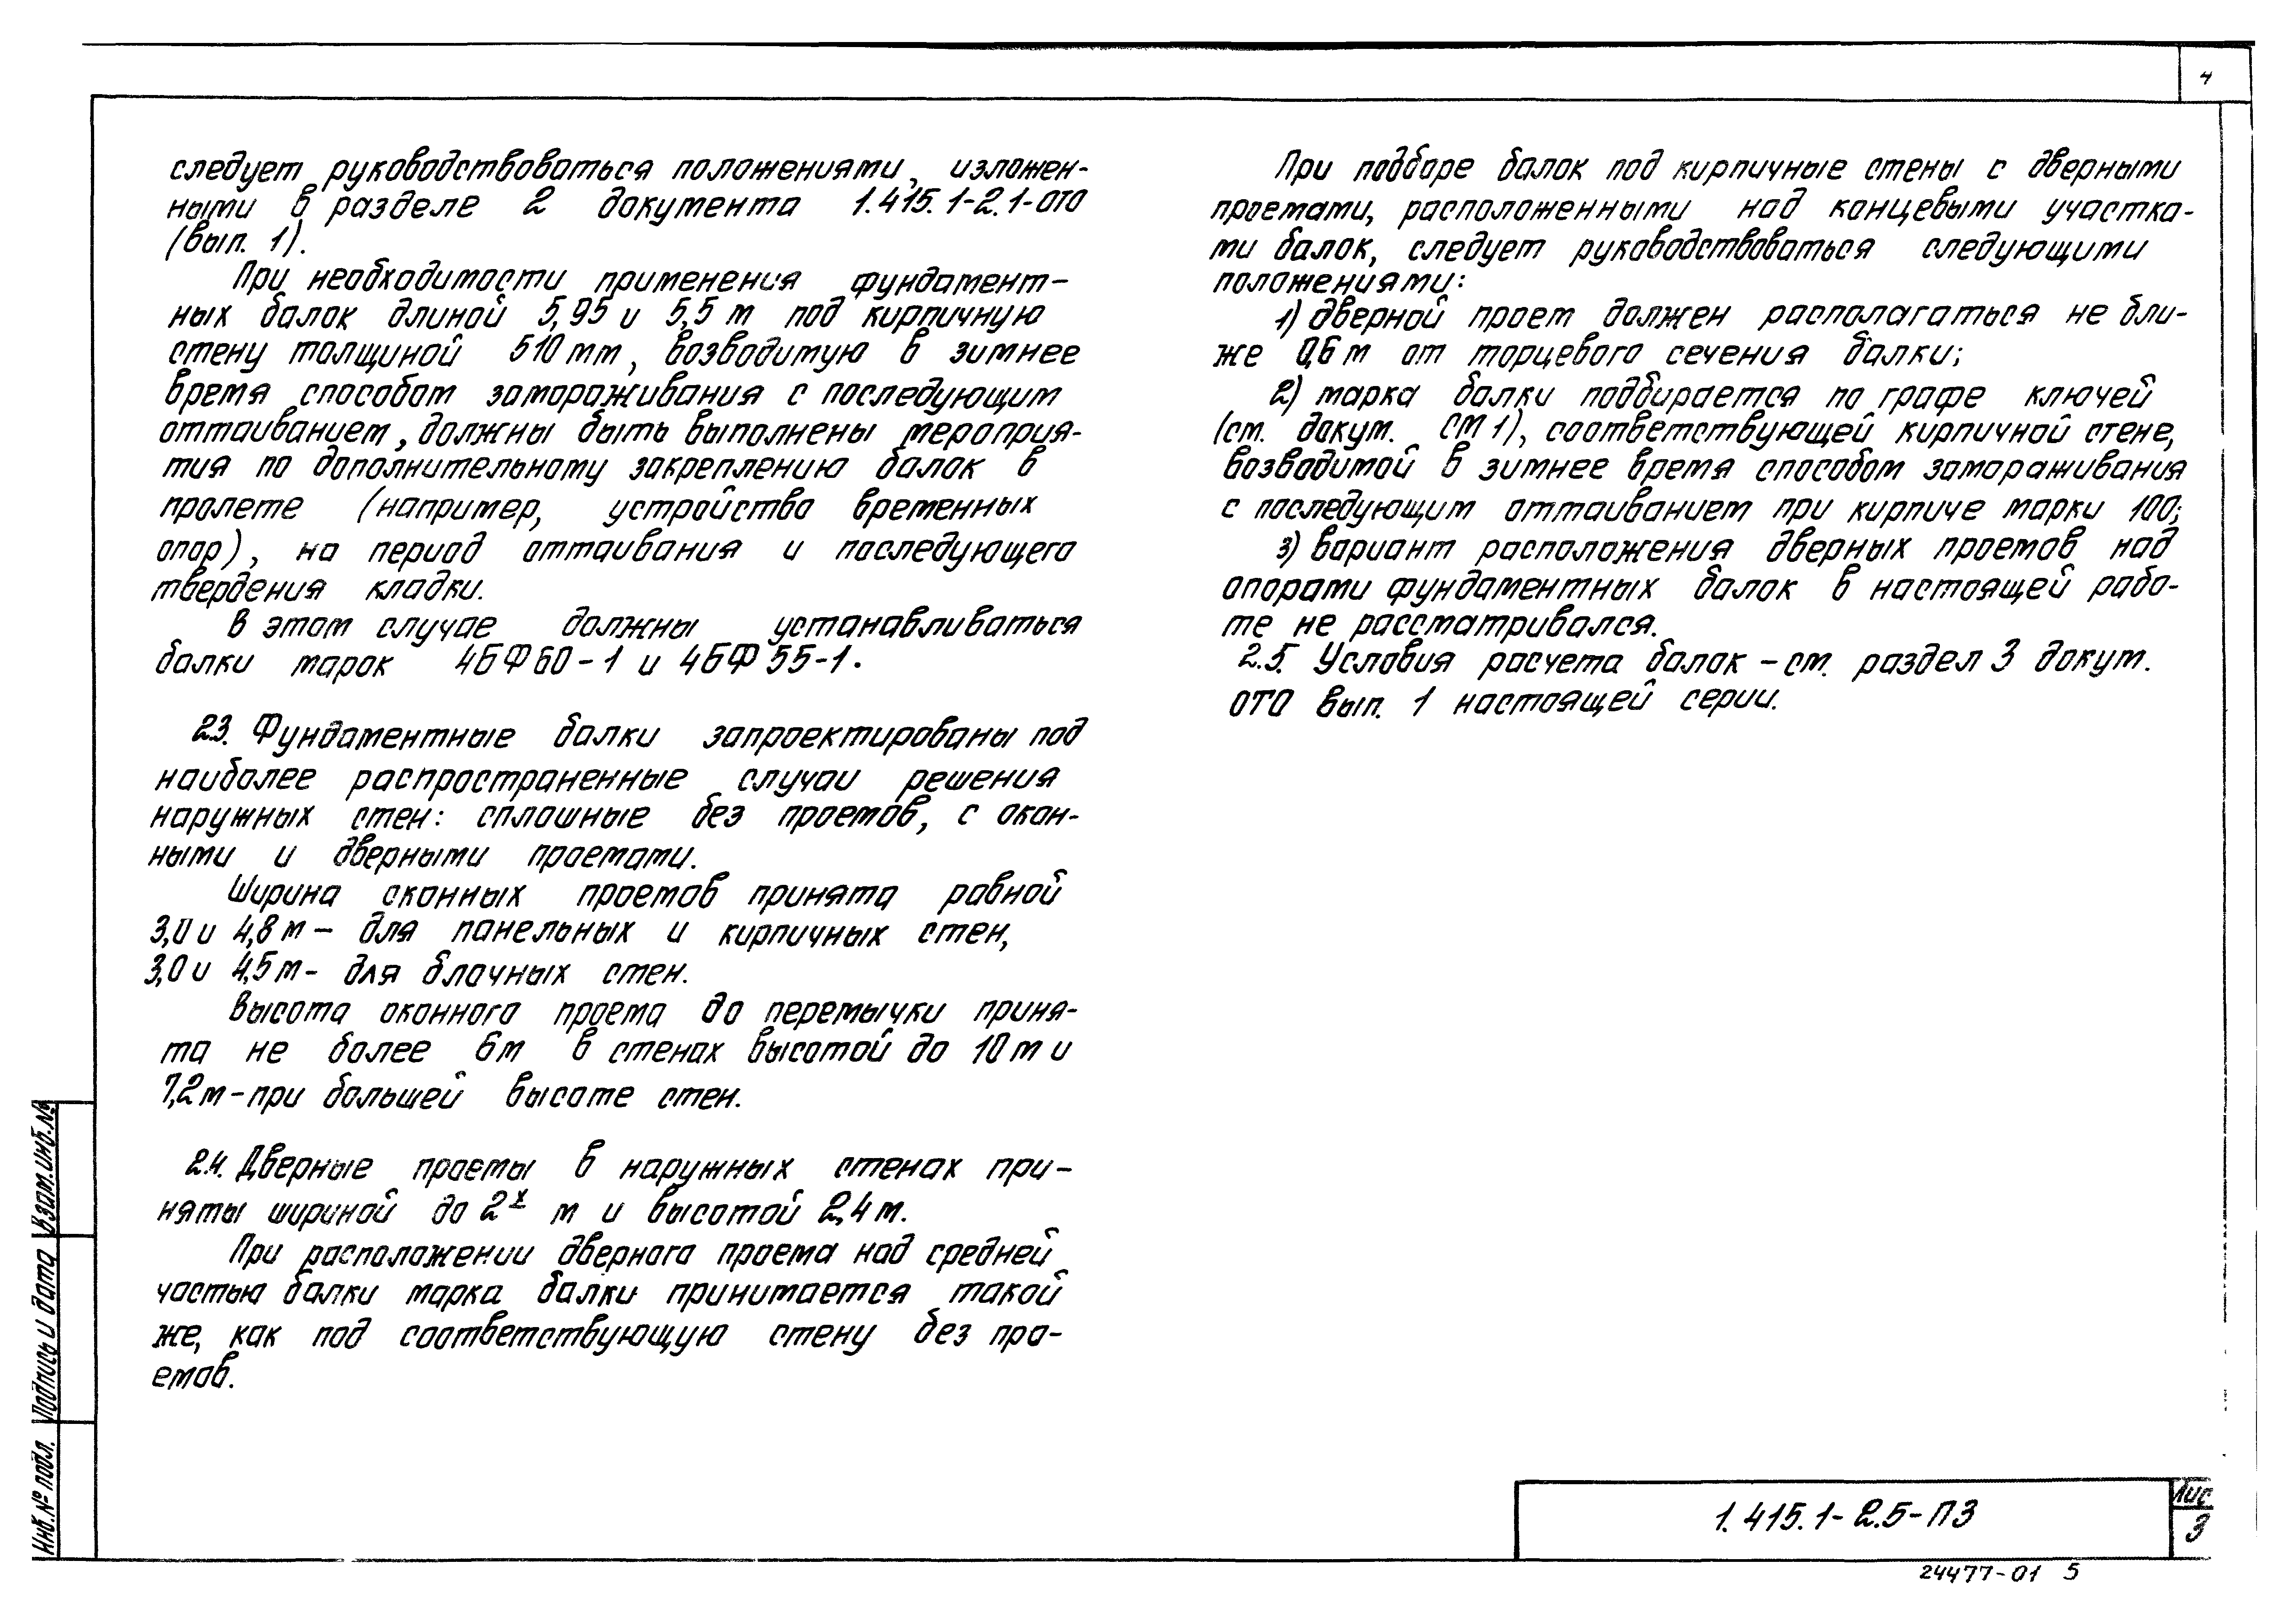 4
следует руководствоваться положениями, изложен-
ными в разделе 2 документа 1.415.1-2.1-ОТО
(вып. 1).
При необходимости применения фундамент-
ных балок длиной 5,95 и 5,5 м под кирпичную
стену толщиной 510 мм, возводимую в зимнее
время способом замораживания с последующим
оттаиванием, должны быть выполнены мероприя-
тия по дополнительному закреплению балок в
пролете (например, устройство временных
опор), на период оттаивания и последующего
твердения кладки.
В этом случае должны устанавливаться
балки марок 4БФ60-1 и 4БФ55-1.
2.3. Фундаментные балки запроектированы под
наиболее распространенные случаи решения
наружных стен: сплошные без проемов, с окон-
ными и дверными проемами.
Ширина оконных проемов принята равной
3,0 и 4,8 м - для панельных и кирпичных стен,
3,0 и 4,5 м - для блочных стен.
Высота оконного проема до перемычки приня-
та не более 6 м в стенах высотой до 10 м и
7,2 м - при большей высоте стен.
2.4. Дверные проемы в наружных стенах при-
няты шириной до 2х м и высотой 2,4 м.
При расположении дверного проема над средней
частью балки марка балки принимается такой
же, как под соответствующую стену без про-
емов.
При подборе балок под кирпичные стены с дверными
проемами, расположенными над концевыми участка-
ми балок, следует руководствоваться следующими
положениями:
1) дверной проем должен располагаться не бли-
же 0,6 м от торцевого сечения балки;
2) марка балки подбирается по графе ключей
(см. докум. СМ1), соответствующей кирпичной стене,
возводимой в зимнее время способом замораживания
с последующим оттаиванием при кирпиче марки 100;
3) вариант расположения дверных проемов над
опорами фундаментных балок в настоящей рабо-
те не рассматривался.
2.5. Условия расчета балок - см. раздел 3 докум.
ОТО вып. 1 настоящей серии.
Инв. № подл. Подпись и дата Взам. инв. №
1.415.1-2.5-ПЗ
Лис
3
24477-01 5